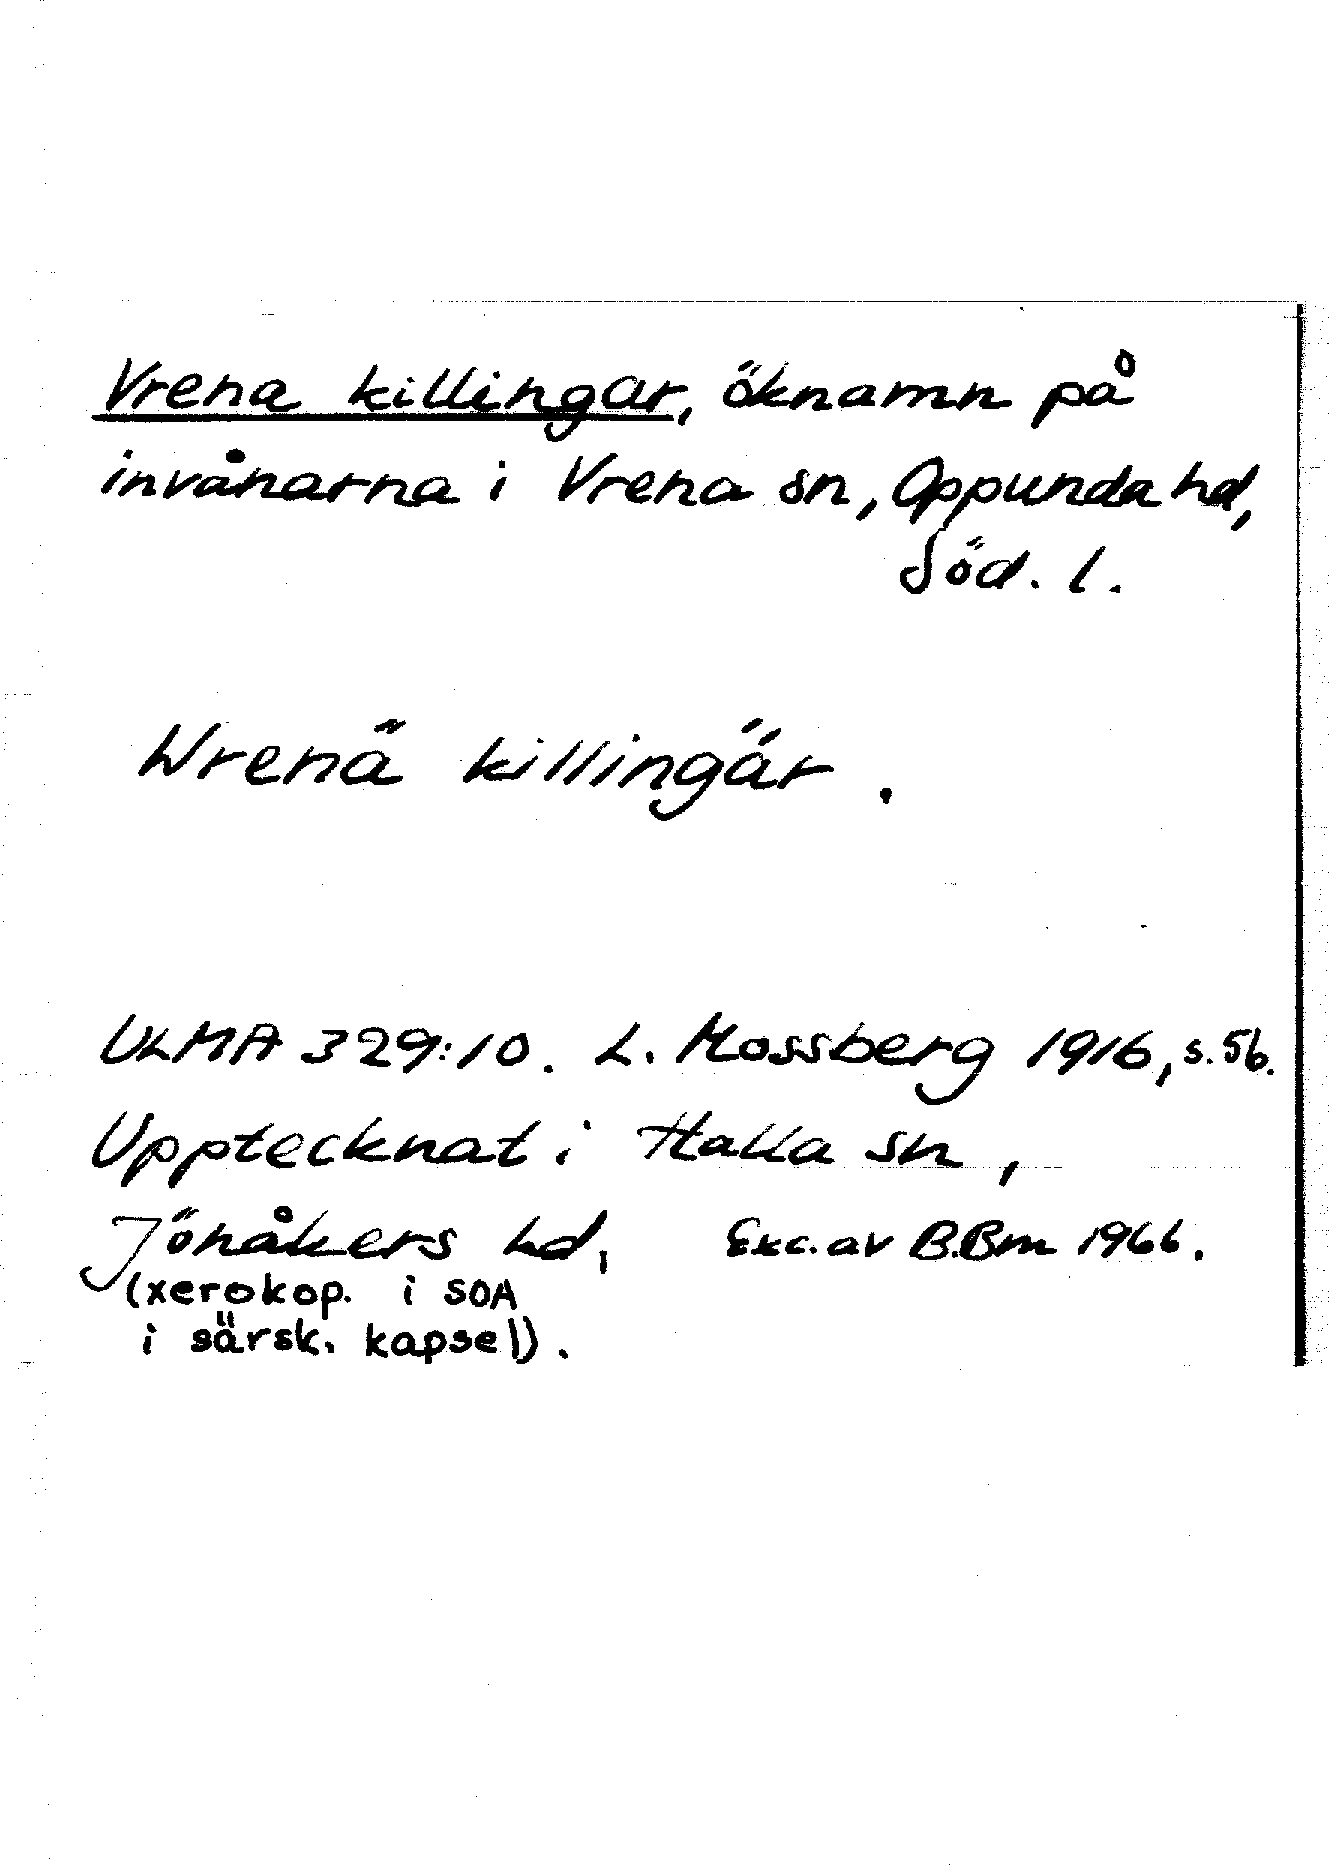 Vrena killingar, öknamn på
invånarna i Vrena sn, Oppunda hd,
Söd. l.
Wrenä killingär.
ULMA 329:10. L. Mossberg 1916, s. 5b.
Upptecknat i Halla sn,
Jönåkers hd, Exc. av B.Bm 1966.
(xerokop. i SOA
i särsk. kapsel).